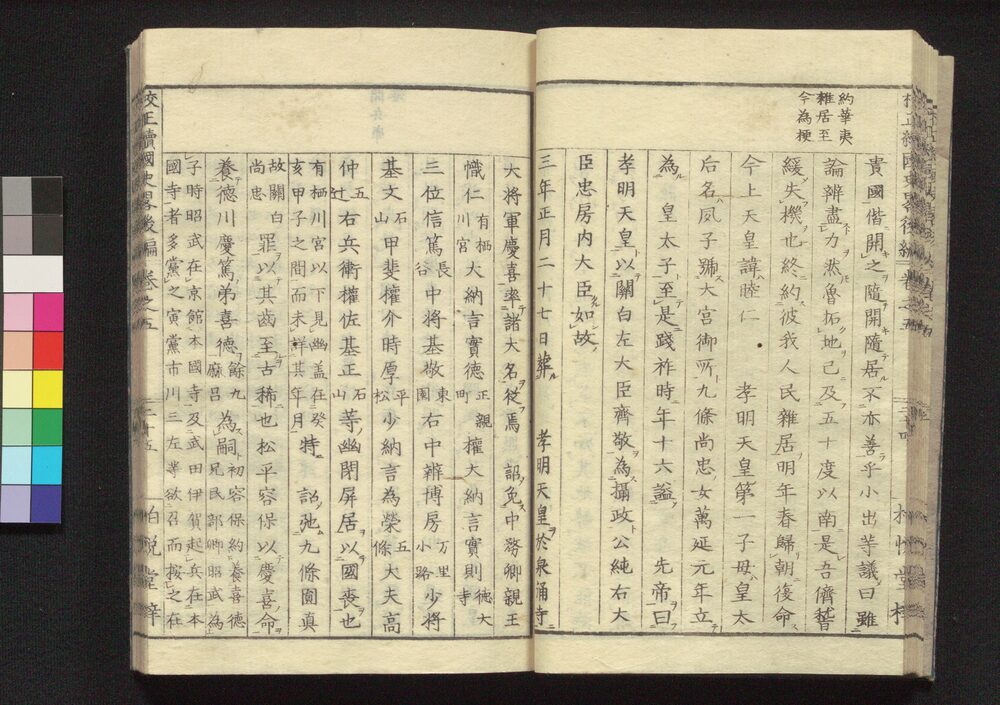 校正續國史畧後編 卷之五
約華夷
雜居至
今為梗
貴國偕開之隨開隨居不亦善乎小出等議曰雖
論辨盡力然魯拓地已及五十度以南是吾儕嘗
緩失機也終約彼我人民雜居明年春歸朝復命
今上天皇諱睦仁 孝明天皇第一子母皇太
后名夙子號大宮御所九條尚忠女萬延元年立
為 皇太子至是踐祚時年十六謚 先帝曰
孝明天皇以關白左大臣齊敬為攝政公純右大
臣忠房内大臣如故
三年正月二十七日葬 孝明天皇於泉涌寺
大将軍慶喜率諸大名從焉 詔免中務卿親王
幟仁有栖川宮大納言實德正親町權大納言實則德大寺
三位信篤長谷中将基敬東園右中辨博房万里小路少将
基文石山甲斐權介時厚平松少納言為榮五條大夫高
仲五辻右兵衛權佐基正石山等幽閉屏居以國喪也
有栖川宮以下見幽盖在癸
亥甲子之間而未詳其年月特 詔弛九條圓真
故關白
尚忠罪以其齒至古稀也松平容保以慶喜命
養德川慶篤弟喜德餘九麻呂為嗣初容保約養喜德兄民部卿昭武為
子時昭武在京館本國寺及武田伊賀起兵在本
國寺者多黨之寅黨市川三左等欲召而按之在
校正續國史畧後編 卷之五
二十五
柏悦堂梓